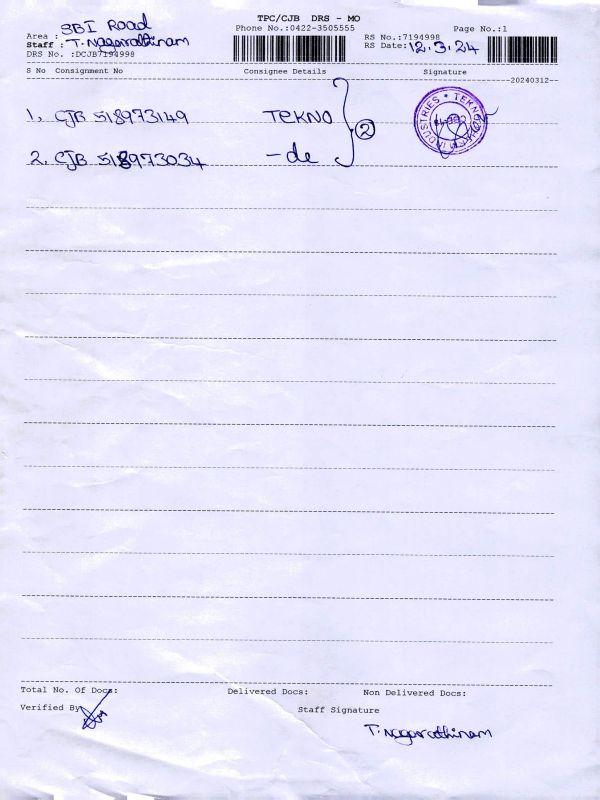 TPC/CJB DRS - MO
Area : SBI Road Phone No.:0422-3505555 RS No.:7194998 Page No.:1
Staff : T. Nagarathinam RS Date: 12.3.24
DRS No. :DCJB7194998
S No Consignment No Consignee Details Signature
--20240312--
1. CJB 518973149 TEKNO
2. CJB 518973034 - do
2
INDUSTRIES * TEKNO
Total No. Of Docs: Delivered Docs: Non Delivered Docs:
Verified By Staff Signature
T. Nagarathinam